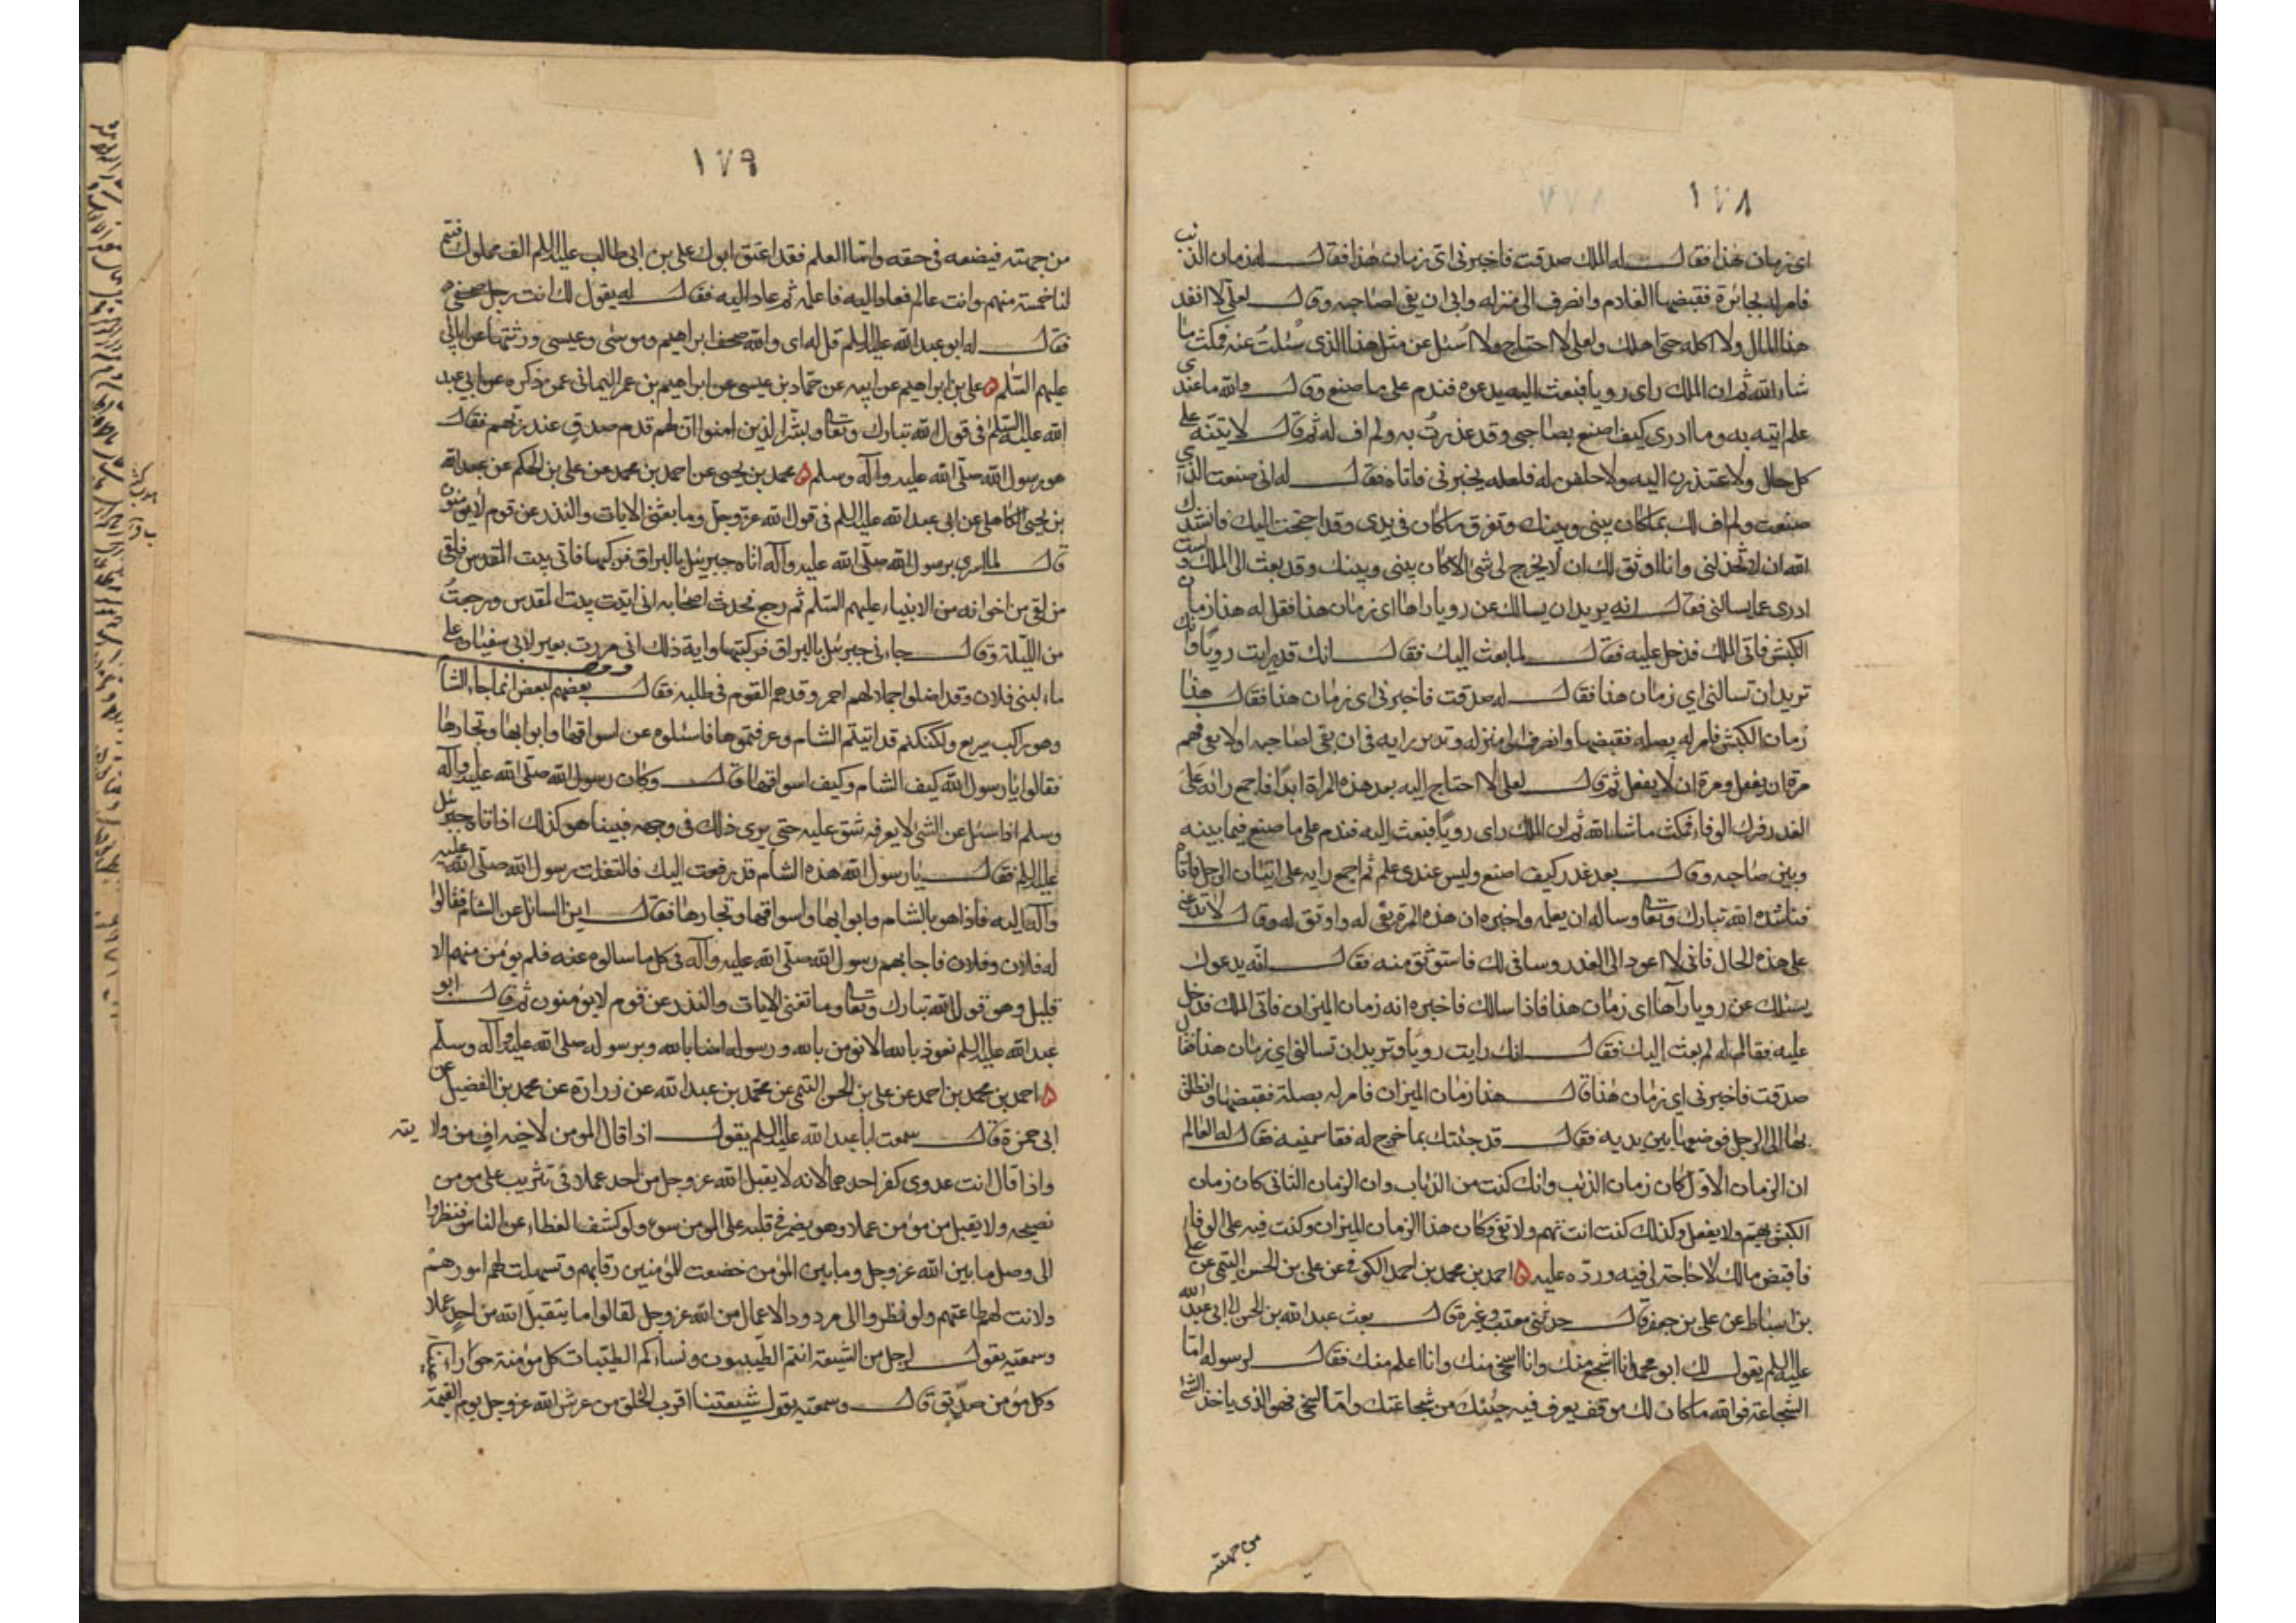 ١٧٨
اى زمان هذا فقال له الملك صدقت فاخبرنى اىّ زمان هذا فقال له زمان الذئب
فامر له بجائزة فقبضها الغلام وانصرف الى منزله وابى ان يفى لصاحبه وقال لعلّى لا انفد
هذا المال ولا اكله حتى اهلك ولعلى لا احتاج ولا اُسئل عن مثل هذا الذى سُئلتُ عنه فمكث ما
شاء الله ثم ان الملك راى رويا فبعث اليه يدعوه فندم على ما صنع وقال والله ما عندى
علم اتيه به وما ادرى كيف اصنع بصاحبى وقد غدرتُ به ولم اف له ثم قال لاتينّه على
كل حال ولاعتذرن اليه ولاحلفن له فلعله يخبرنى فاتاه فقال له انى صنعت الذى
صنعت ولم اف لك بما كان بينى وبينك وتفرق ما كان فى يدى وقد احتجت اليك فانشدك
الله ان لا تخذلنى وانا اوثق لك ان لا يخرج لى شئ الا كان بينى وبينك وقد بعث الى الملك ولست
ادرى عما يسالنى فقال انه يريد ان يسالك عن رويا راها اى زمان هذا فقل له هذا زمان
الكبش فاتى الملك فدخل عليه فقال لما بعثت اليك فقال انك قد رايت رويا وانك
تريد ان تسالنى اي زمان هذا فقال له صدقت فاخبرنى اى زمان هذا فقال هذا
زمان الكبش فامر له بصله فقبضها وانصرف الى منزله وتدبر رايه فى ان يفى لصاحبه اولا يفى فهم
مرة ان يفعل ومرة ان لا يفعل ثم قال لعلى لا احتاج اليه بعد هذه المراة ابدًا فاجمع رائه على
الغدر وترك الوفاء فمكث ما شاء الله ثم ان الملك راى رويًا فبعث اليه فندم على ما صنع فيما بينه
وبين صاحبه وقال بعد غدر كيف اصنع وليس عندى علم ثم اجمع رايه على اتيان الرجل فاتاه
فناشده الله تبارك وتعالى وساله ان يعلمه واخبره ان هذه المرة يفى له واوثق له وقال لا تدعنى
على هذه الحال فانى لا اعود الى الغدر وسافى لك فاستوثق منه فقال انّه يدعوك
يسئلك عن رويا رآها اى زمان هذا فاذا سالك فاخبره انه زمان الميزان فاتى الملك فدخل
عليه فقال له لم بعثت اليك فقال انك رايت رويًا وتريد ان تسالنى اى زمان هذا فقال
صدقت فاخبرنى اى زمان هذا قال هذا زمان الميزان فامر له بصلة فقبضها وانطلق
بها الى الرجل فوضعها بين يديه فقال قد جئتك بما خرج له فقاسمنيه فقال له العالم
ان الزمان الاوّل كان زمان الذئب وانك كنت من الذئاب وان الزمان الثانى كان زمان
الكبش يهتم ولا يفعل وكذلك كنت انت تهم ولا تفى وكان هذا الزمان الميزان وكنت فيه على الوفاء
فاقبض مالك لا حاجة لى فيه وردّه عليه ۵ احمد بن محمد بن احمد الكوفى عن على بن الحسن التيمى عن على
بن اسباط عن على بن جعفر قال حدثنى معتب او غيره قال بعث عبد الله بن الحسن الى ابى عبد الله
عليه السلم يقول لك ابو محمد انا اشجع منك وانا اسخى منك وانا اعلم منك فقال لرسوله امّا
الشجاعة فوالله ما كان لك موقف يعرف فيه جبنك من شجاعتك وامّا السخى فهو الذى ياخذ الشئ
من جهته
١٧٩
من جهته فيضعه فى حقه وامّا العلم فقد اعتق ابوك على بن ابى طالب عليه السلم الف مملوك فسمّ
لنا خمسة منهم وانت عالم فعاد اليه فاعلمه ثم عاد اليه فقال له يقول لك انت رجل صحفى
فقال له ابو عبد الله عليه السلم قل له اى والله صحف ابراهيم وموسى وعيسى ورثتها عن ابائى
عليهم السّلم ۵ على بن ابراهيم عن ابيه عن حمّاد بن عيسى عن ابراهيم بن عمر اليمانى عمن ذكره عن ابى عبد
الله عليه السّلم فى قول الله تبارك وتعالى وبشّر الذين امنوا انّ لهم قدم صدق عند ربّهم فقال
هو رسول الله صلّى الله عليه وآله وسلم ۵ محمد بن يحيى عن احمد بن محمد عن على بن الحكم عن عبد الله
بن يحيى الكاهلى عن ابى عبد الله عليه السلم فى قول الله عزّ وجلّ وما تغنى الايات والنذر عن قوم لايؤمنون
قال لما اسرى برسول الله صلّى الله عليه وآله اتاه جبرئيل بالبراق فركبها فاتى بيت المقدس فلقى
من لقى من اخوانه من الانبياء عليهم السّلم ثم رجع فحدث اصحابه انى اتيت بيت المقدس ورجعتُ
من الليّلة وقال جاءنى جبرئيل بالبراق فركبتها واية ذلك انى مررت بعير لابى سفيان على
ماء لبنى فلان وقد اضلوا جملا لهم احمر وقدهم القوم فى طلبه فقال بعضهم لبعض انما جاء الشام
وهو راكب سريع ولكنكم قد اتيتم الشام وعرفتموها فاسئلوه عن اسواقها وابوابها وتجارها
فقالوا يا رسول الله كيف الشام وكيف اسواقها قال وكان رسول الله صلّى الله عليه وآله
وسلم اذا سئل عن الشئ لا يعرفه شق عليه حتى يرى ذلك فى وجهه فبينا هو كذلك اذ اتاه جبرئيل
عليه السلم فقال يا رسول الله هذه الشام قد رفعت اليك فالتفت رسول الله صلّى الله عليه
وآله اليه فاذا هو بالشام وابوابها واسواقها وتجارها فقال اين السائل عن الشام فقالوا
له فلان وفلان فاجابهم رسول الله صلّى الله عليه وآله فى كل ما سالوه عنه فلم يؤمن منهم الا
قليل وهو قول الله تبارك وتعالى وما تغنى الايات والنذر عن قوم لايؤمنون ثم قال ابو
عبد الله عليه السلم نعوذ بالله الا نؤمن بالله ورسوله امنا بالله وبرسوله صلى الله عليه وآله وسلّم
۵ احمد بن محمد بن احمد عن على بن الحسن التيمى عن محمّد بن عبد الله عن زرارة عن محمد بن الفضيل عن
ابى حمزة قال سمعت ابا عبد الله عليه السلم يقول اذا قال المومن لاخيه افٍ من ولايته
واذا قال انت عدوى كفر احدهما لانه لا يقبل الله عز وجل من احد عملا فى تثريب على مومن
نصيحه ولا يقبل من مؤمن عملا وهو يضمر فى قلبه على المومن سوء ولو كشف الغطاء عن الناس فنظروا
الى وصل ما بين الله عز وجل وما بين المؤمن خضعت للمؤمنين رقابهم وتسهلت لهم امورهم
ولانت لهم طاعتهم ولو نظروا الى مردود الاعمال من الله عز وجل لقالوا ما يتقبل الله من احدٍ عملا
وسمعته يقول لرجل من الشيعة انتم الطيّبون ونساءكم الطيّبات كل مؤمنة حوراء
وكل مؤمن صدّيق قال وسمعته يقول شيعتنا اقرب الخلق من عرش الله عز وجل يوم القيمة